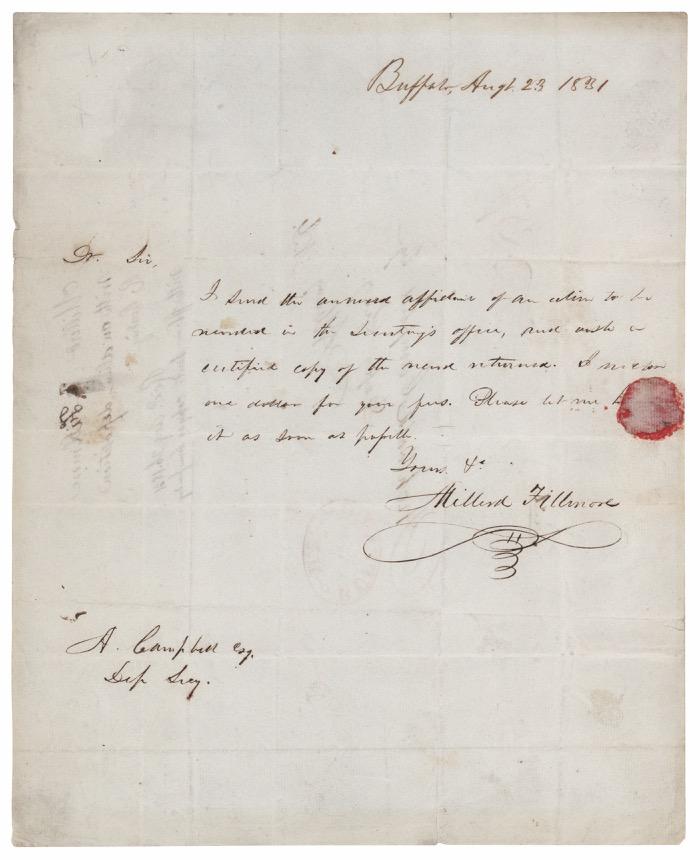 Buffalo, Augt. 23 1831
Dr. Sir,
I send the annexed affidavit of an alien to be
recorded in the Secretary's office, and wish a
certified copy of the record returned. I
one dollar for your fees. Please let me
it as soon as possible.
Yours &c
Millard Fillmore
A. Campbell Esq.
Dep Secy.